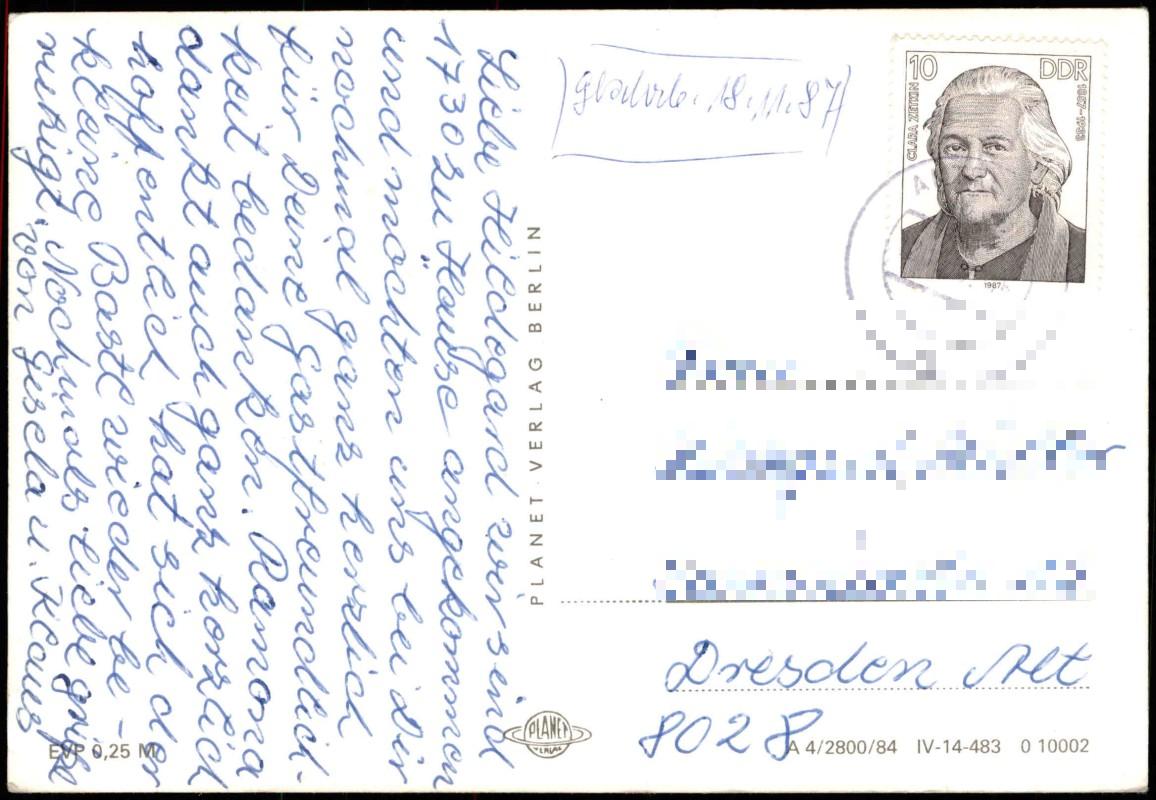 Gladrb. 18.11.87
Liebe Hildegard wir sind
1730 zu Hause angekommen
und möchten uns bei dir
nochmal ganz herzlich
für Deine Gastfreundlich-
keit bedanken. Ramona
dankt auch ganz herzlich
hoffentlich hat sich der
kleine Bastl wieder be-
ruhigt. Nochmals liebe Grüße
von Gisela u. Klaus
EVP 0,25 M
PLANET-VERLAG BERLIN
PLANET
VERLAG
10 DDR
CLARA ZETKIN 1857-1933
1987
Dresden Alt
8028
A 4/2800/84 IV-14-483 0 10002